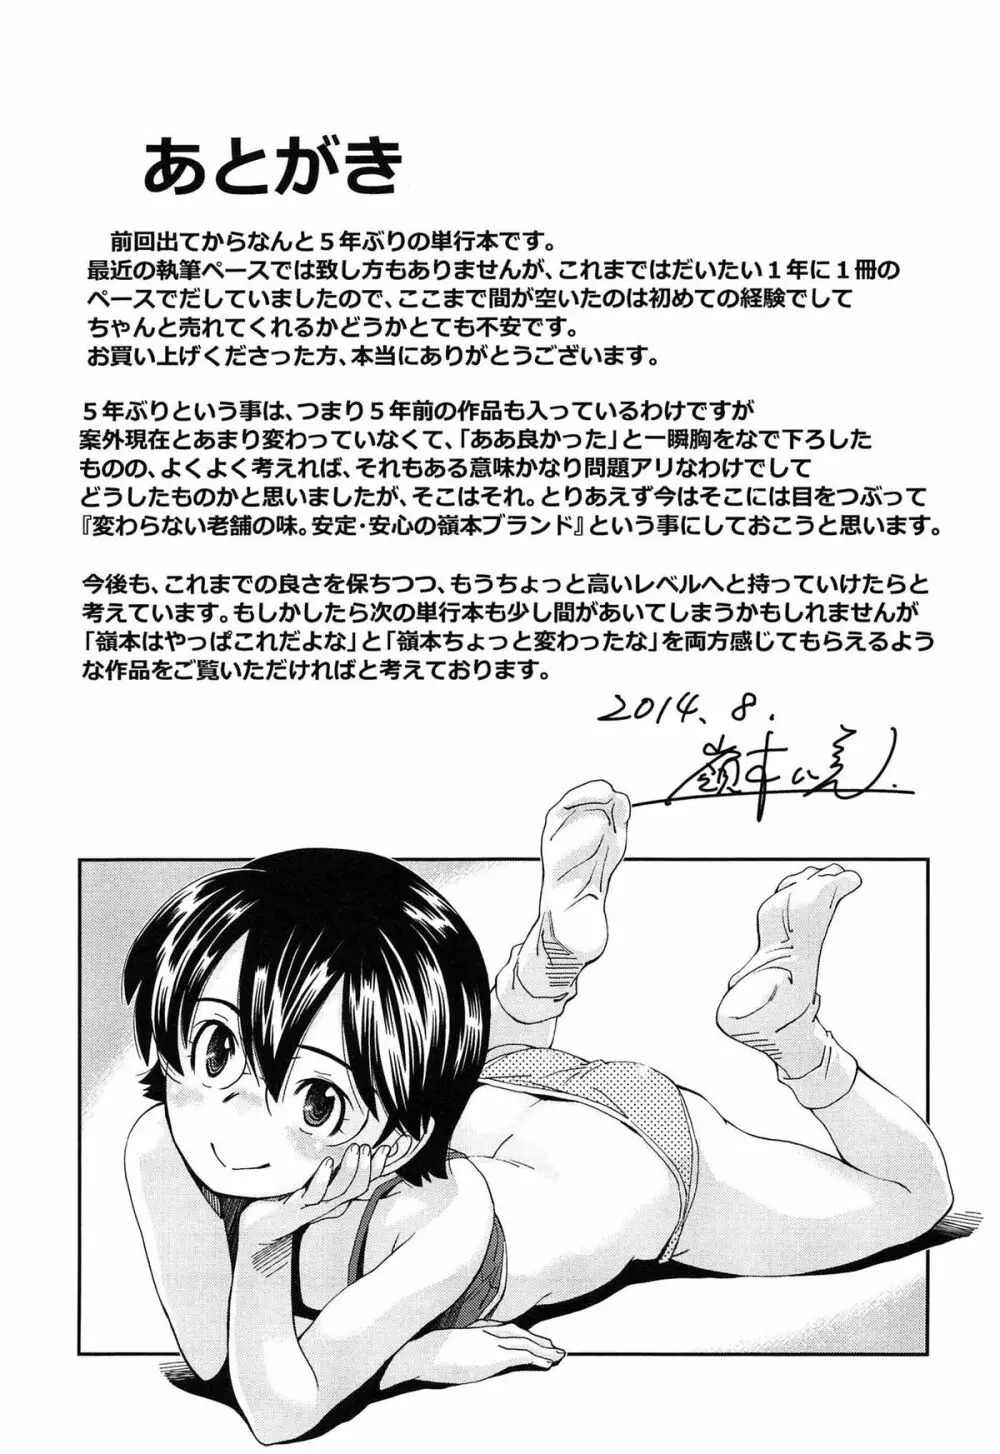 あとがき
前回出てからなんと５年ぶりの単行本です。
最近の執筆ペースでは致し方もありませんが、これまではだいたい１年に１冊の
ペースでだしていましたので、ここまで間が空いたのは初めての経験でして
ちゃんと売れてくれるかどうかとても不安です。
お買い上げくださった方、本当にありがとうございます。
５年ぶりという事は、つまり５年前の作品も入っているわけですが
案外現在とあまり変わっていなくて、「ああ良かった」と一瞬胸をなで下ろした
ものの、よくよく考えれば、それもある意味かなり問題アリなわけでして
どうしたものかと思いましたが、そこはそれ。とりあえず今はそこには目をつぶって
『変わらない老舗の味。安定・安心の嶺本ブランド』という事にしておこうと思います。
今後も、これまでの良さを保ちつつ、もうちょっと高いレベルへと持っていけたらと
考えています。もしかしたら次の単行本も少し間があいてしまうかもしれませんが
「嶺本はやっぱこれだよな」と「嶺本ちょっと変わったな」を両方感じてもらえるよう
な作品をご覧いただければと考えております。
2014、8．